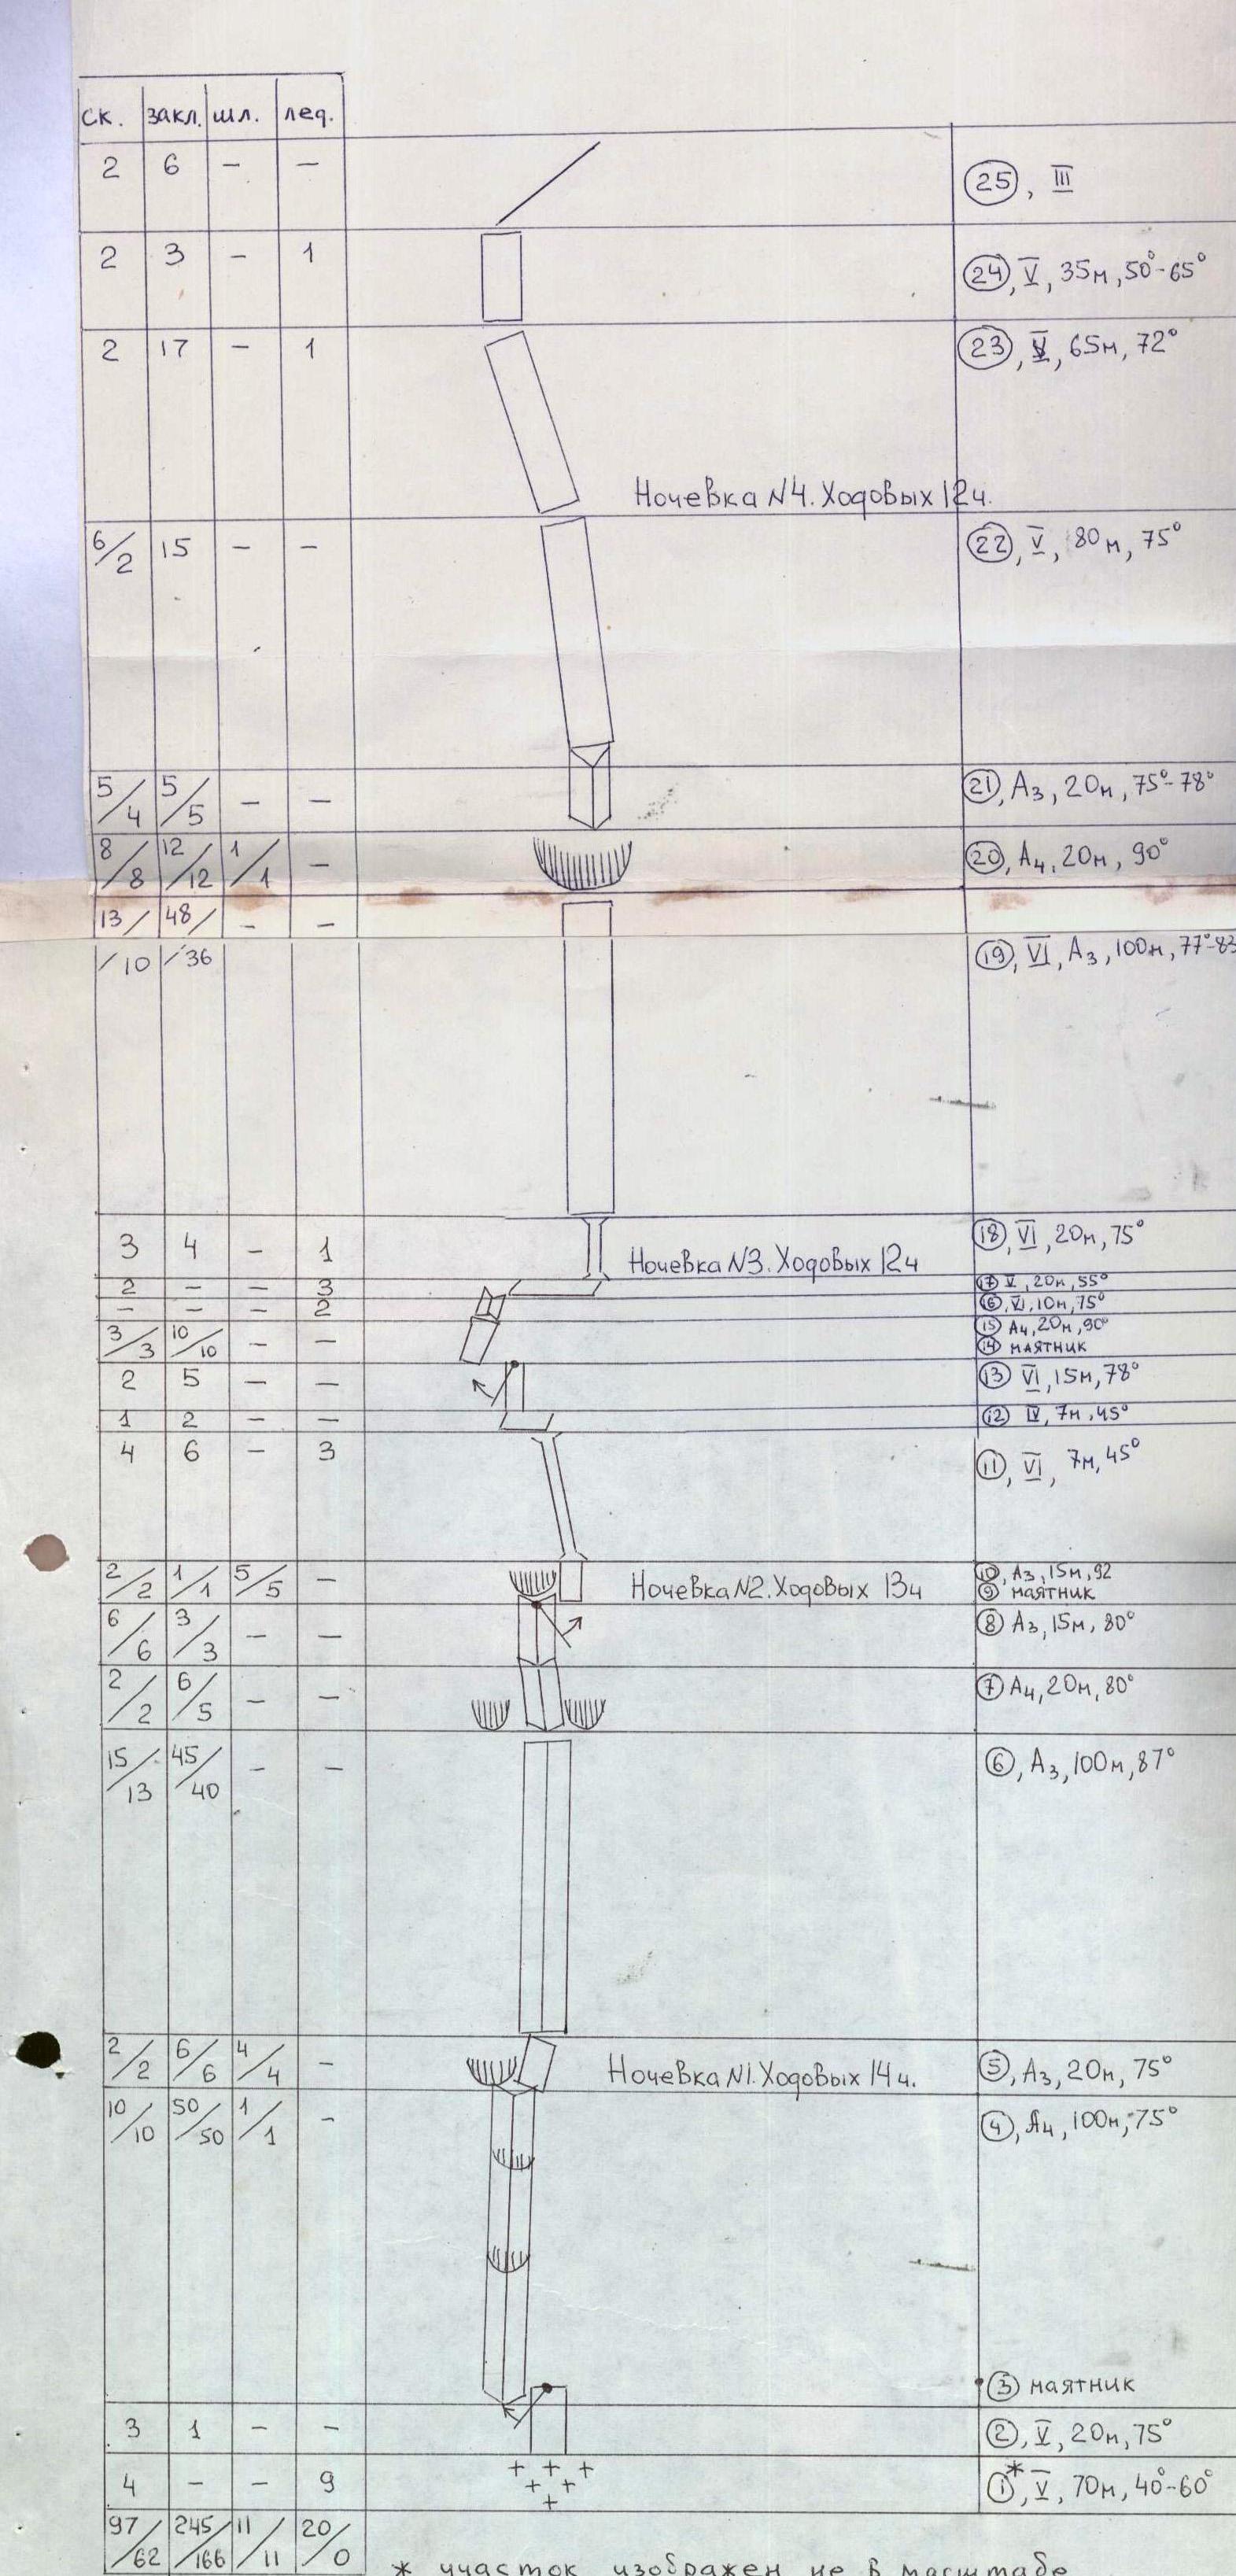 ск. закл. шл. лед.
2 6 – – (25), III
2 3 – 1 (24), V, 35м, 50°-65°
2 17 – 1 (23), V, 65м, 72°
Ночевка N4. Ходовых 12ч.
6/2 15 – – (22), V, 80м, 75°
5/4 5/5 – – (21), А3, 20м, 75°-78°
8/8 12/12 1/1 – (20), А4, 20м, 90°
13/10 48/36 – – (19), VI, А3, 100м, 77°-83
3 4 – 1 (18), VI, 20м, 75°
Ночевка N3. Ходовых 12ч
2 – – 3 (17) V, 20м, 55°
– – – 2 (16), VI, 10м, 75°
3/3 10/10 – – (15) А4, 20м, 90°
(14) маятник
2 5 – – (13) VI, 15м, 78°
1 2 – – (12) IV, 7м, 45°
4 6 – 3 (11), VI, 7м, 45°
2/2 1/1 5/5 – (10), А3, 15м, 92
Ночевка N2. Ходовых 13ч (9) маятник
6/6 3/3 – – (8) А3, 15м, 80°
2/2 6/5 – – (7) А4, 20м, 80°
15/13 45/40 – – (6), А3, 100м, 87°
2/2 6/6 4/4 – Ночевка N1. Ходовых 14ч. (5), А3, 20м, 75°
10/10 50/50 1/1 – (4), А4, 100м, 75°
(3) маятник
3 1 – – (2), V, 20м, 75°
4 – – 9 (1)*, V, 70м, 40°-60°
97/62 245/166 11/11 20/0
* участок изображен не в масштабе